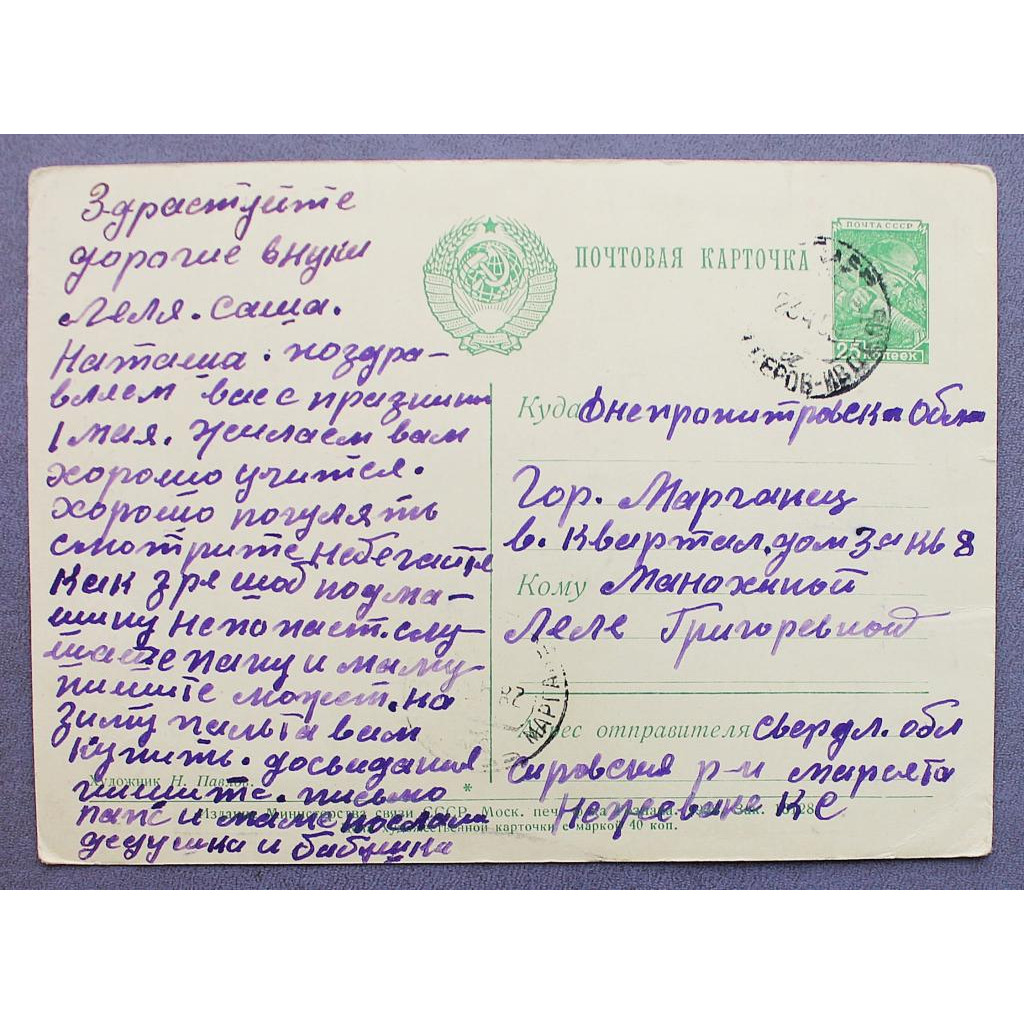 Здраствуйте
дорогие внуки
Леля. Саша.
Наташа. поздра-
вляем вас с празником
1 мая. Жилаем вам
хорошо учится.
хорошо погулять
смотрите небегайте
как зря шоб подма-
шину непопаст. слу-
шайте папу и маму
пишите может. на
зиму пальта вам
купить. досвидания
пишите. письмо
папе и маме послали
дедушка и бабушка
ПОЧТОВАЯ КАРТОЧКА
ПОЧТА СССР
25 КОПЕЕК
СЕРОВ-ИВДЕЛЬ
Куда Днепропитровск-я Обл-
Гор. Марганец
в. Квартал. дом 3-а кв 8
Кому Манохиной
Леле Григоревной
МАРГАНЕЦ
Адрес отправителя свердл. обл
Сировский р-н Марсята
Художник Н. Павлов.
Издание Министерства связи СССР. Моск. печ.
художественной карточки с маркой 40 коп.